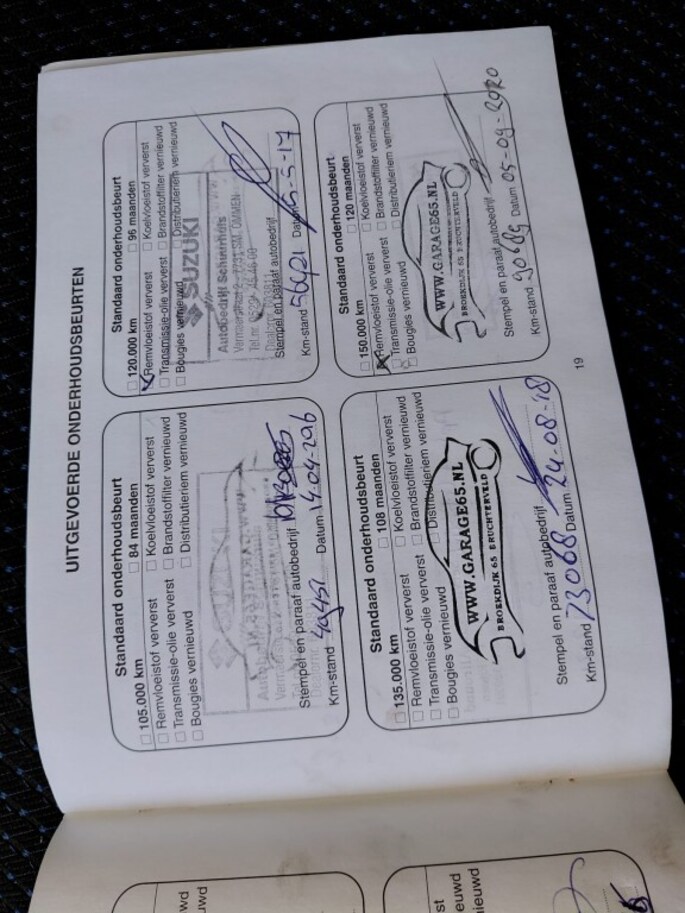 UITGEVOERDE ONDERHOUDSBEURTEN
Standaard onderhoudsbeurt
☐ 105.000 km ☐ 84 maanden
☐ Remvloeistof ververst ☐ Koelvloeistof ververst
☐ Transmissie-olie ververst ☐ Brandstoffilter vernieuwd
☐ Bougies vernieuwd ☐ Distributieriem vernieuwd
Stempel en paraaf autobedrijf
Km-stand 49451 Datum 14-04-2016
Standaard onderhoudsbeurt
☐ 120.000 km ☐ 96 maanden
☒ Remvloeistof ververst ☐ Koelvloeistof ververst
☐ Transmissie-olie ververst ☐ Brandstoffilter vernieuwd
☐ Bougies vernieuwd ☐ Distributieriem vernieuwd
SUZUKI
Autobedrijf Scherrhuis
OMMEN
Stempel en paraaf autobedrijf
Km-stand Datum
Standaard onderhoudsbeurt
☐ 135.000 km ☐ 108 maanden
☐ Remvloeistof ververst ☐ Koelvloeistof ververst
☐ Transmissie-olie ververst ☐ Brandstoffilter vernieuwd
☐ Bougies vernieuwd ☐ Distributieriem vernieuwd
WWW.GARAGE65.NL
BROEKDIJK 65 BRUCHTERVELD
Stempel en paraaf autobedrijf
Km-stand 73068 Datum 24-08-18
Standaard onderhoudsbeurt
☐ 150.000 km ☐ 120 maanden
☒ Remvloeistof ververst ☐ Koelvloeistof ververst
☐ Transmissie-olie ververst ☐ Brandstoffilter vernieuwd
☐ Bougies vernieuwd ☐ Distributieriem vernieuwd
WWW.GARAGE65.NL
BROEKDIJK 65 BRUCHTERVELD
Stempel en paraaf autobedrijf
Km-stand 90689 Datum 05-09-2020
19